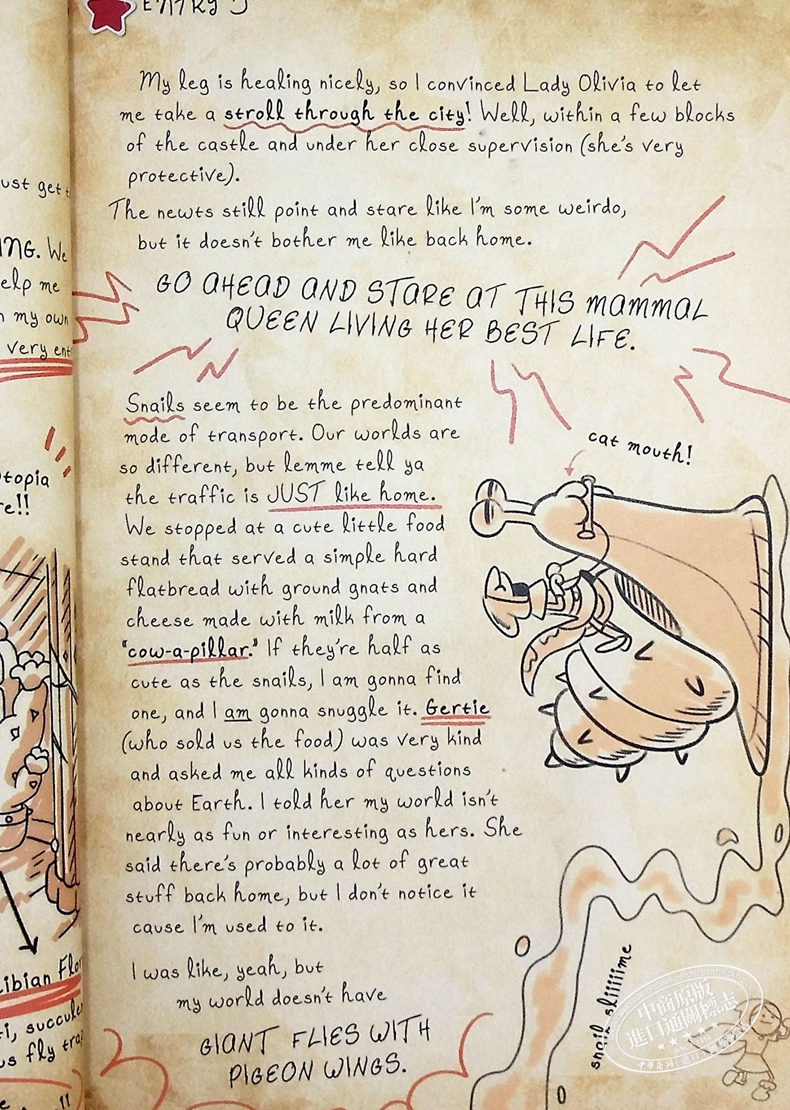 ENTRY 5
My leg is healing nicely, so I convinced Lady Olivia to let
me take a stroll through the city! Well, within a few blocks
of the castle and under her close supervision (she's very
protective).
The newts still point and stare like I'm some weirdo,
but it doesn't bother me like back home.
GO AHEAD AND STARE AT THIS MAMMAL
QUEEN LIVING HER BEST LIFE.
Snails seem to be the predominant
mode of transport. Our worlds are
so different, but lemme tell ya
the traffic is JUST like home.
We stopped at a cute little food
stand that served a simple hard
flatbread with ground gnats and
cheese made with milk from a
"cow-a-pillar." If they're half as
cute as the snails, I am gonna find
one, and I am gonna snuggle it. Gertie
(who sold us the food) was very kind
and asked me all kinds of questions
about Earth. I told her my world isn't
nearly as fun or interesting as hers. She
said there's probably a lot of great
stuff back home, but I don't notice it
cause I'm used to it.
I was like, yeah, but
my world doesn't have
GIANT FLIES WITH
PIGEON WINGS.
cat mouth!
snail sliiiiime
ust get
ING. We
elp me
my own
very ent
topia
re!!
ibian Flor
i, succule
us fly tra
中商原版
進口通關標志